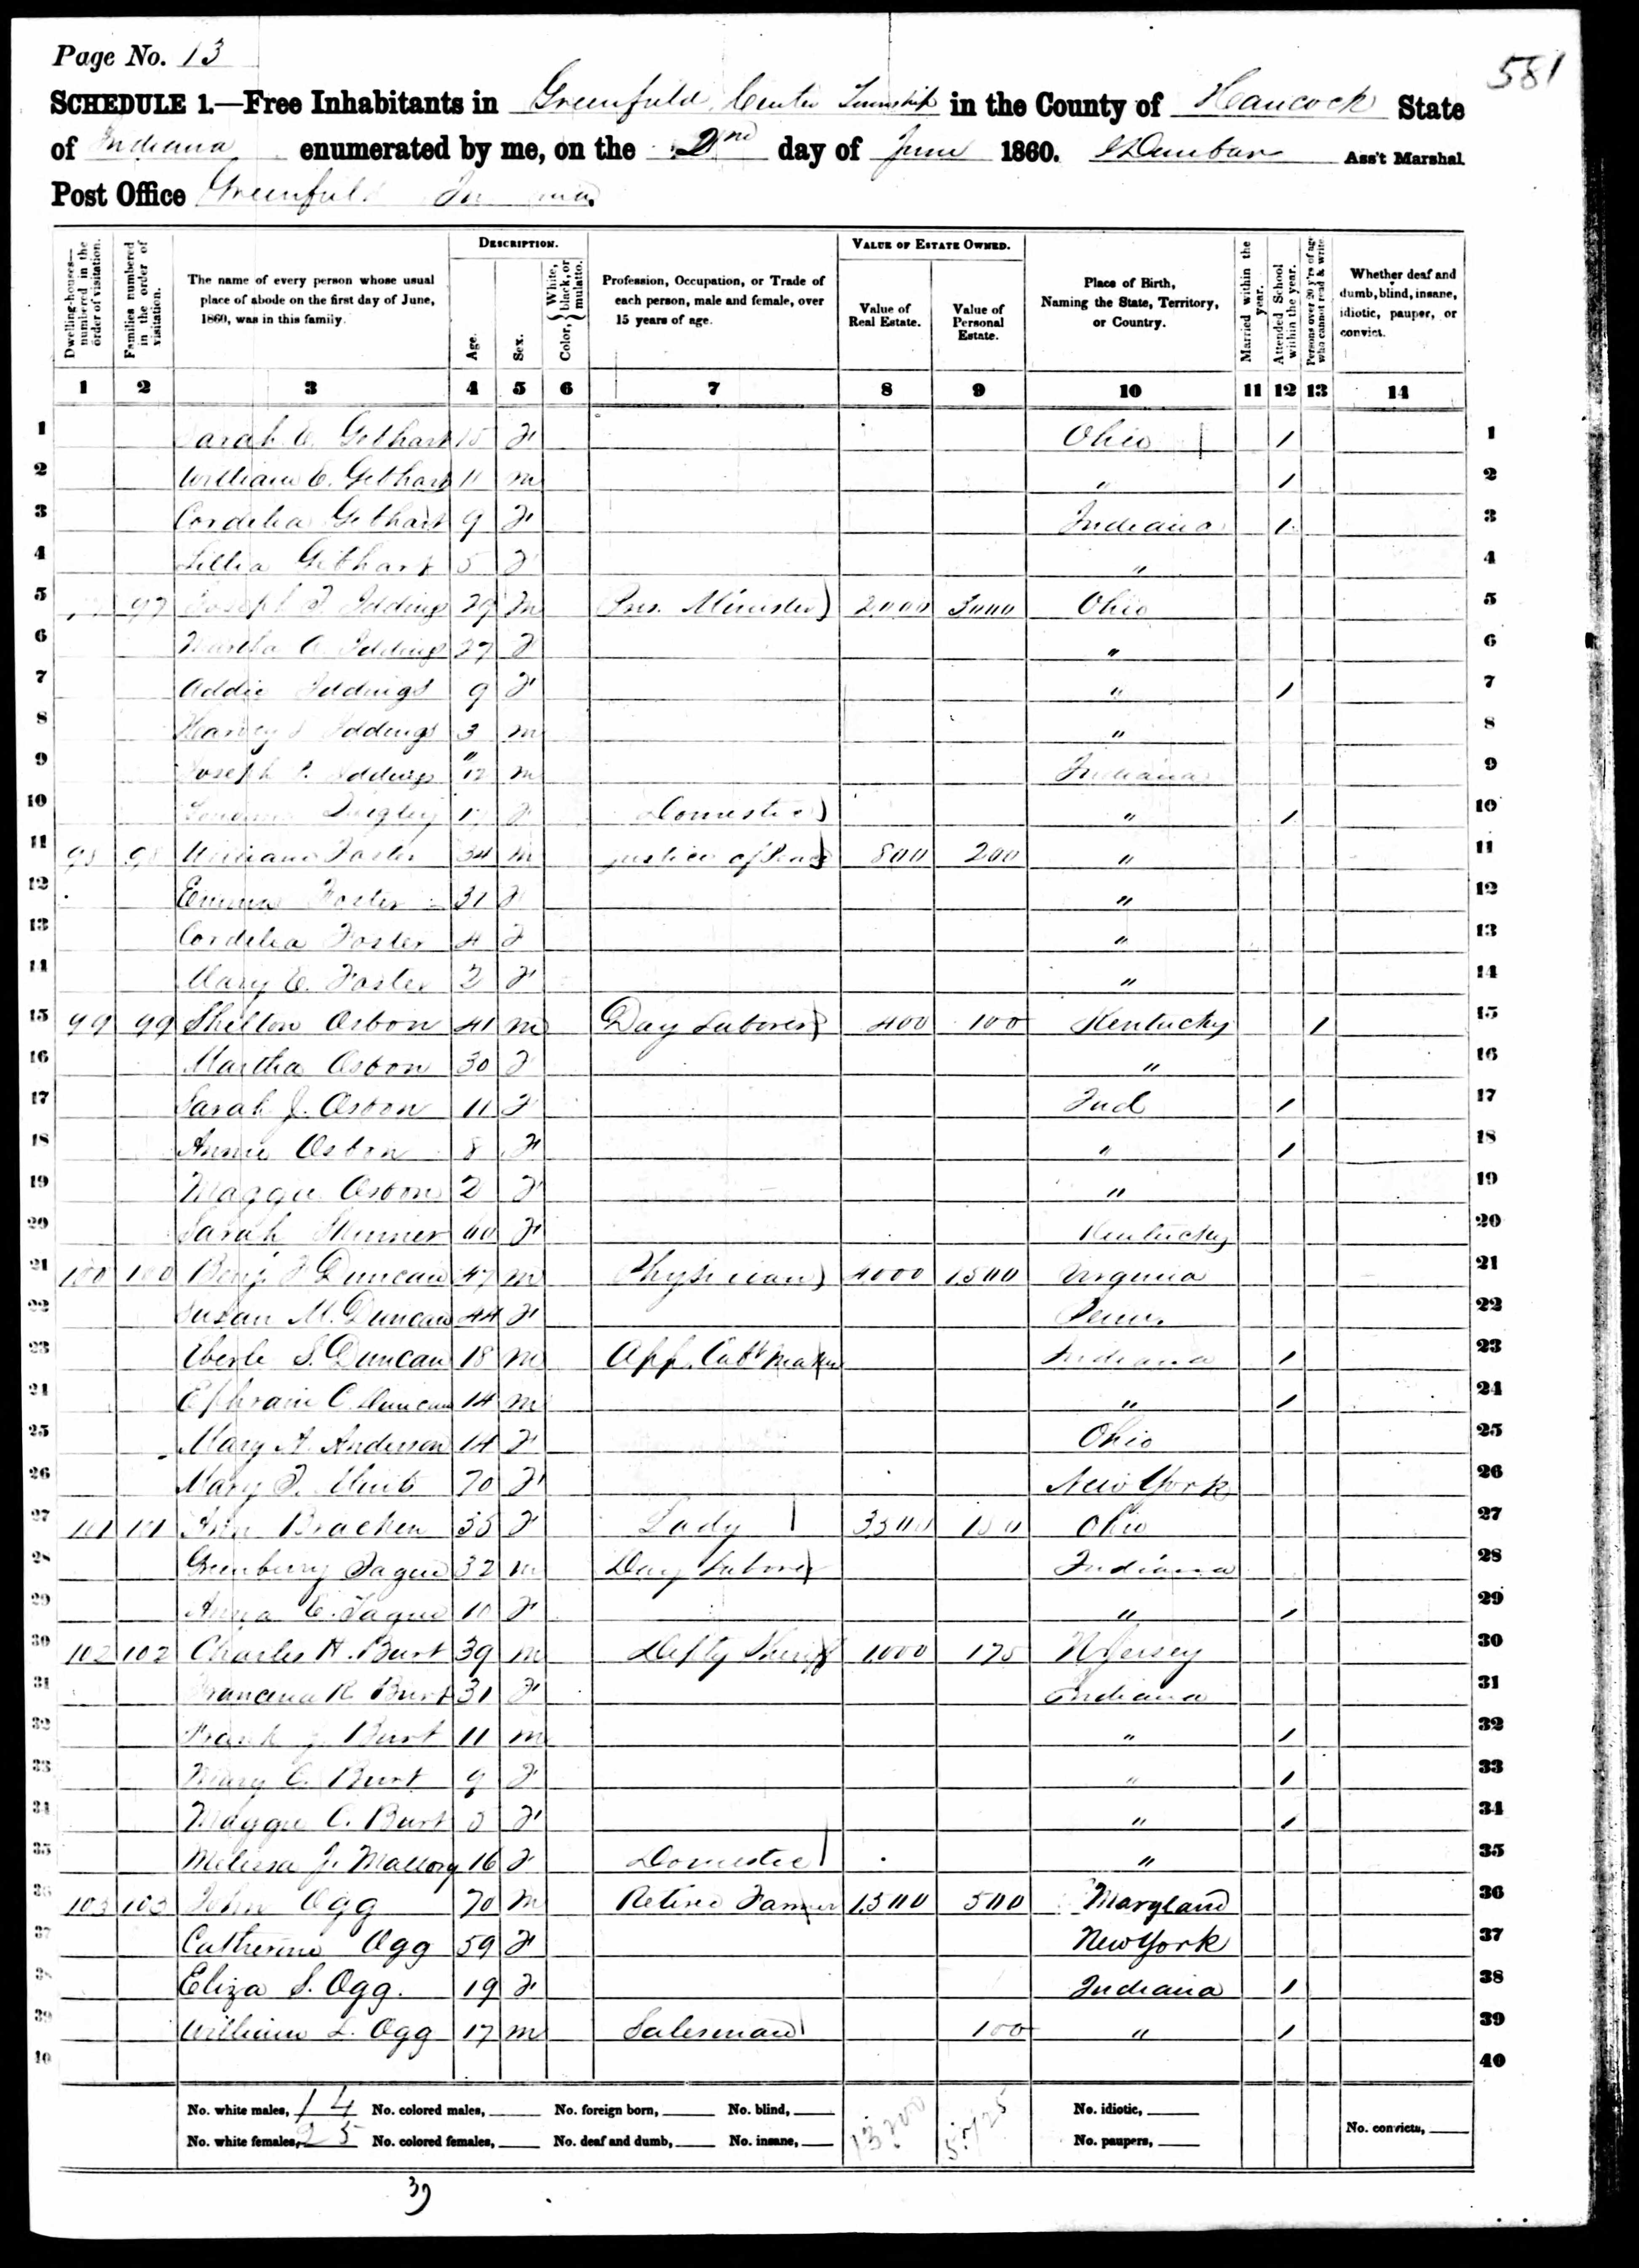 Page No. 13
581
SCHEDULE 1.—Free Inhabitants in Greenfield, Center Township in the County of Hancock State
of Indiana enumerated by me, on the 2nd day of June 1860. Dunbar Ass't Marshal
Post Office Greenfield
DESCRIPTION. VALUE OF ESTATE OWNED.
Dwelling-houses—numbered in the order of visitation. Families numbered in the order of visitation. The name of every person whose usual place of abode on the first day of June, 1860, was in this family. Age. Sex. Color, { White, black, or mulatto. Profession, Occupation, or Trade of each person, male and female, over 15 years of age. Value of Real Estate. Value of Personal Estate. Place of Birth, Naming the State, Territory, or Country. Married within the year. Attended School within the year. Persons over 20 y'rs of age who cannot read & write. Whether deaf and dumb, blind, insane, idiotic, pauper, or convict.
1 2 3 4 5 6 7 8 9 10 11 12 13 14
1 Sarah A. Gebhart 15 F Ohio / 1
2 William C. Gebhart 11 m " / 2
3 Cordelia Gebhart 9 F Indiana / 3
4 Lillia Gebhart 5 F " 4
5 97 Joseph F. Iddings 29 m Minister 2000 3000 Ohio 5
6 Martha A. Iddings 27 F " 6
7 Addie Iddings 9 F " / 7
8 Harvey Iddings 3 m " 8
9 Joseph Iddings 12 m Indiana 9
10 F Domestic " / 10
11 98 98 William Foster 34 m Justice of Peace 800 200 " 11
12 Emma Foster 31 F " 12
13 Cordelia Foster 4 F " 13
14 Mary E. Foster 2 F " 14
15 99 99 Shelton Osbon 41 m Day Laborer 400 100 Kentucky / 15
16 Martha Osbon 30 F " 16
17 Sarah J. Osbon 11 F Ind / 17
18 Annie Osbon 8 F " / 18
19 Maggie Osbon 2 F " 19
20 Sarah Skinner 60 F Kentucky 20
21 100 100 Benj. F Duncan 47 m Physician 4000 1500 Virginia 21
22 Susan M. Duncan 44 F Penn. 22
23 Eberle S. Duncan 18 m App. Cabt Maker Indiana / 23
24 Ephraim C. Duncan 14 m " / 24
25 Mary A. Anderson 14 F Ohio 25
26 Mary F. 70 F New York 26
27 101 101 Ann Bracken 35 F Lady 3500 150 Ohio 27
28 Greenberry Tague 32 m Day Laborer Indiana 28
29 Anna E. Tague 10 F " / 29
30 102 102 Charles H. Burt 39 m Depty Sheriff 1000 175 N Jersey 30
31 Francena R Burt 31 F Indiana 31
32 Frank J. Burt 11 m " / 32
33 Mary C. Burt 9 F " / 33
34 Maggie C. Burt F " / 34
35 Melissa J. Mallory 16 F Domestic " 35
36 103 103 John Ogg 70 m Retired Farmer 1500 500 Maryland 36
37 Catherine Ogg 59 F New York 37
38 Eliza S. Ogg. 19 F Indiana / 38
39 William L. Ogg 17 m Salesman 100 " / 39
40 40
No. white males, 14 No. colored males, No. foreign born, No. blind, 13200 5725 No. idiotic,
No. white females, 25 No. colored females, No. deaf and dumb, No. insane, No. paupers, No. convicts,
39